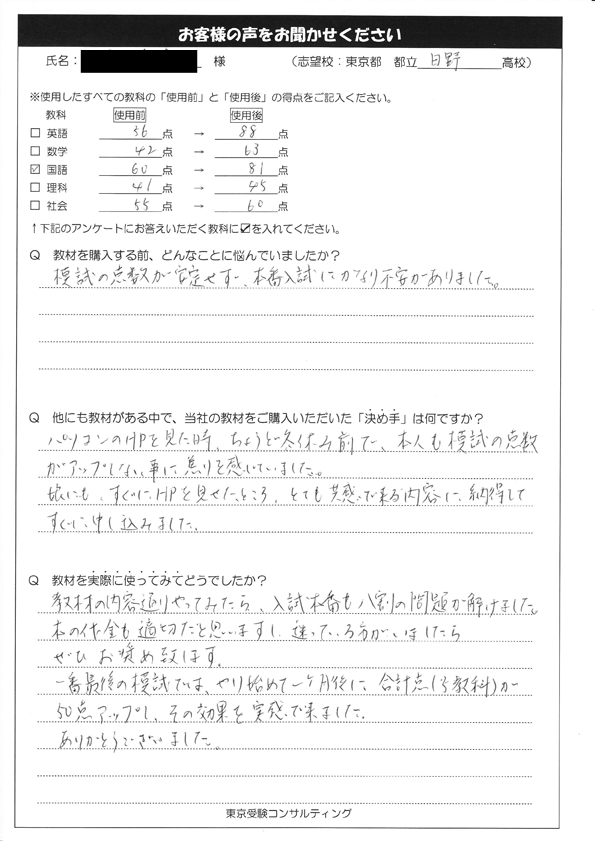 お客様の声をお聞かせください
氏名： 様 （志望校：東京都 都立 日野 高校）
※使用したすべての教科の「使用前」と「使用後」の得点をご記入ください。
教科 使用前 使用後
□ 英語 56 点 → 88 点
□ 数学 42 点 → 63 点
☑ 国語 60 点 → 81 点
□ 理科 41 点 → 45 点
□ 社会 55 点 → 60 点
↑下記のアンケートにお答えいただく教科に☑を入れてください。
Q 教材を購入する前、どんなことに悩んでいましたか？
模試の点数が安定せず、本番入試にかなり不安がありました。
Q 他にも教材がある中で、当社の教材をご購入いただいた「決め手」は何ですか？
パソコンのHPを見た時、ちょうど冬休み前で、本人も模試の点数
がアップしない事に焦りを感いていました。
娘にも、すぐにHPを見せたところ、とても共感で来る内容に、納得して
すぐに申し込みました。
Q 教材を実際に使ってみてどうでしたか？
教材の内容通りやってみたら、入試本番も八割の問題が解けました。
本の代金も適切だと思いますし、迷っている方がいましたら
ぜひお奨め致します。
一番最後の模試では、やり始めて一ヶ月後に、合計点(5教科)が
50点アップし、その効果を実感で来ました。
ありがとうございました。
東京受験コンサルティング